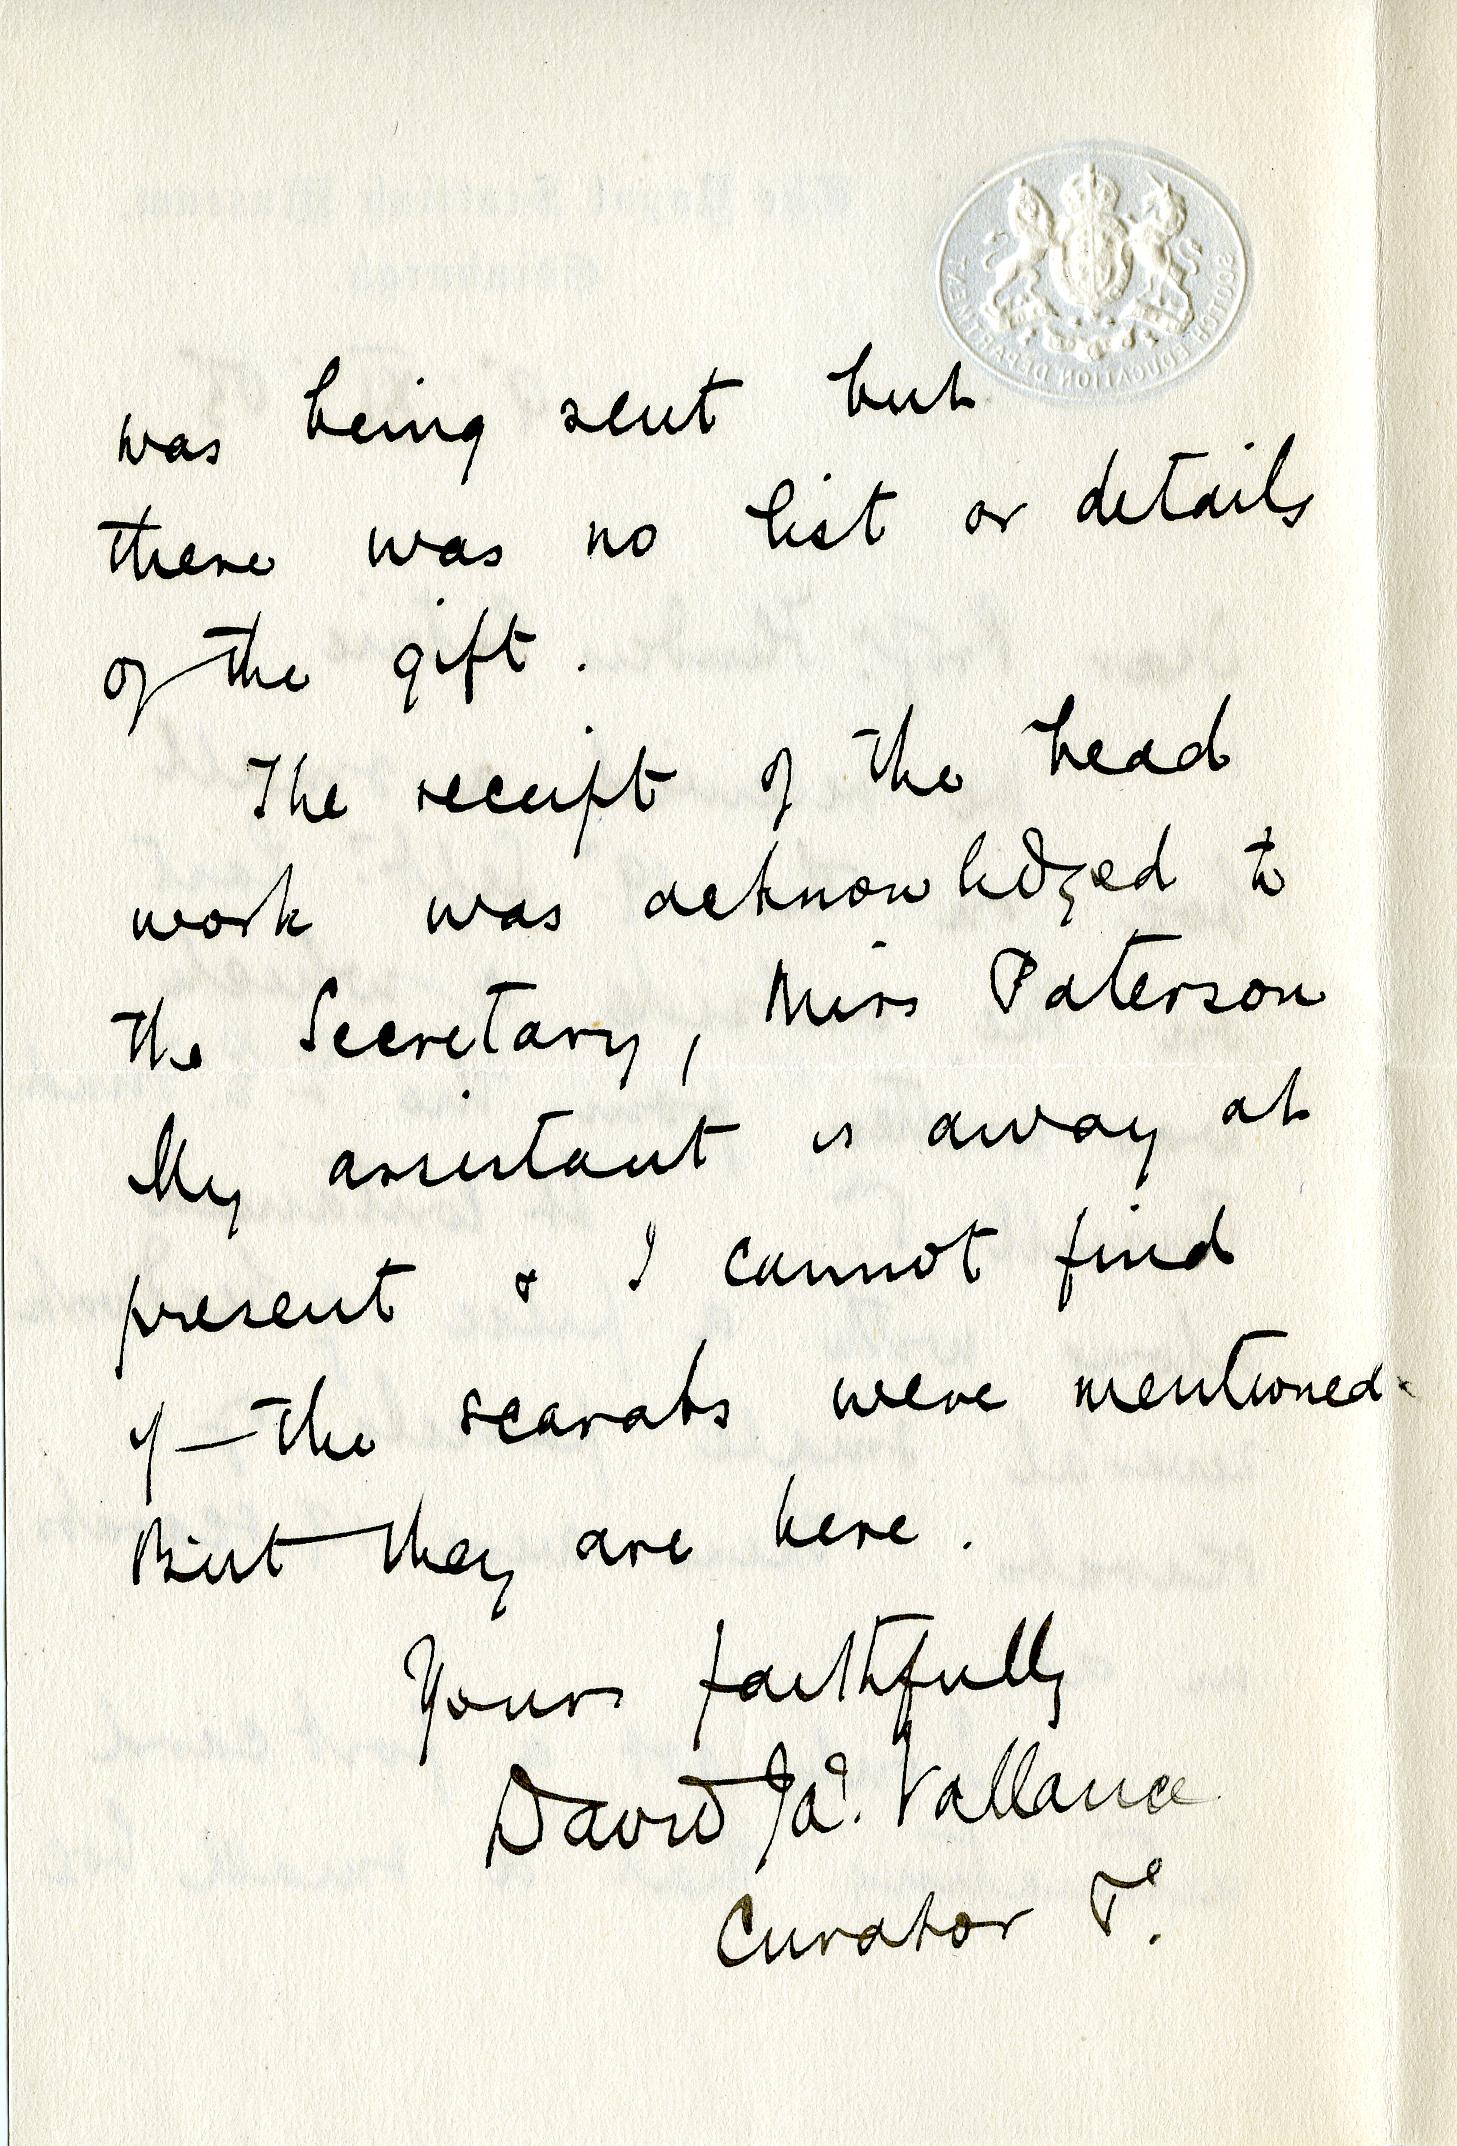 SCOTCH EDUCATION DEPARTMENT
was being sent but
there was no list or details
of the gift.
The receipt of the bead
work was acknowledged to
the Secretary, Miss Paterson
My assistant is away at
present & I cannot find
if the scarabs were mentioned.
But they are here.
Yours faithfully
David Ja⁠s. Vallance
Curator T.